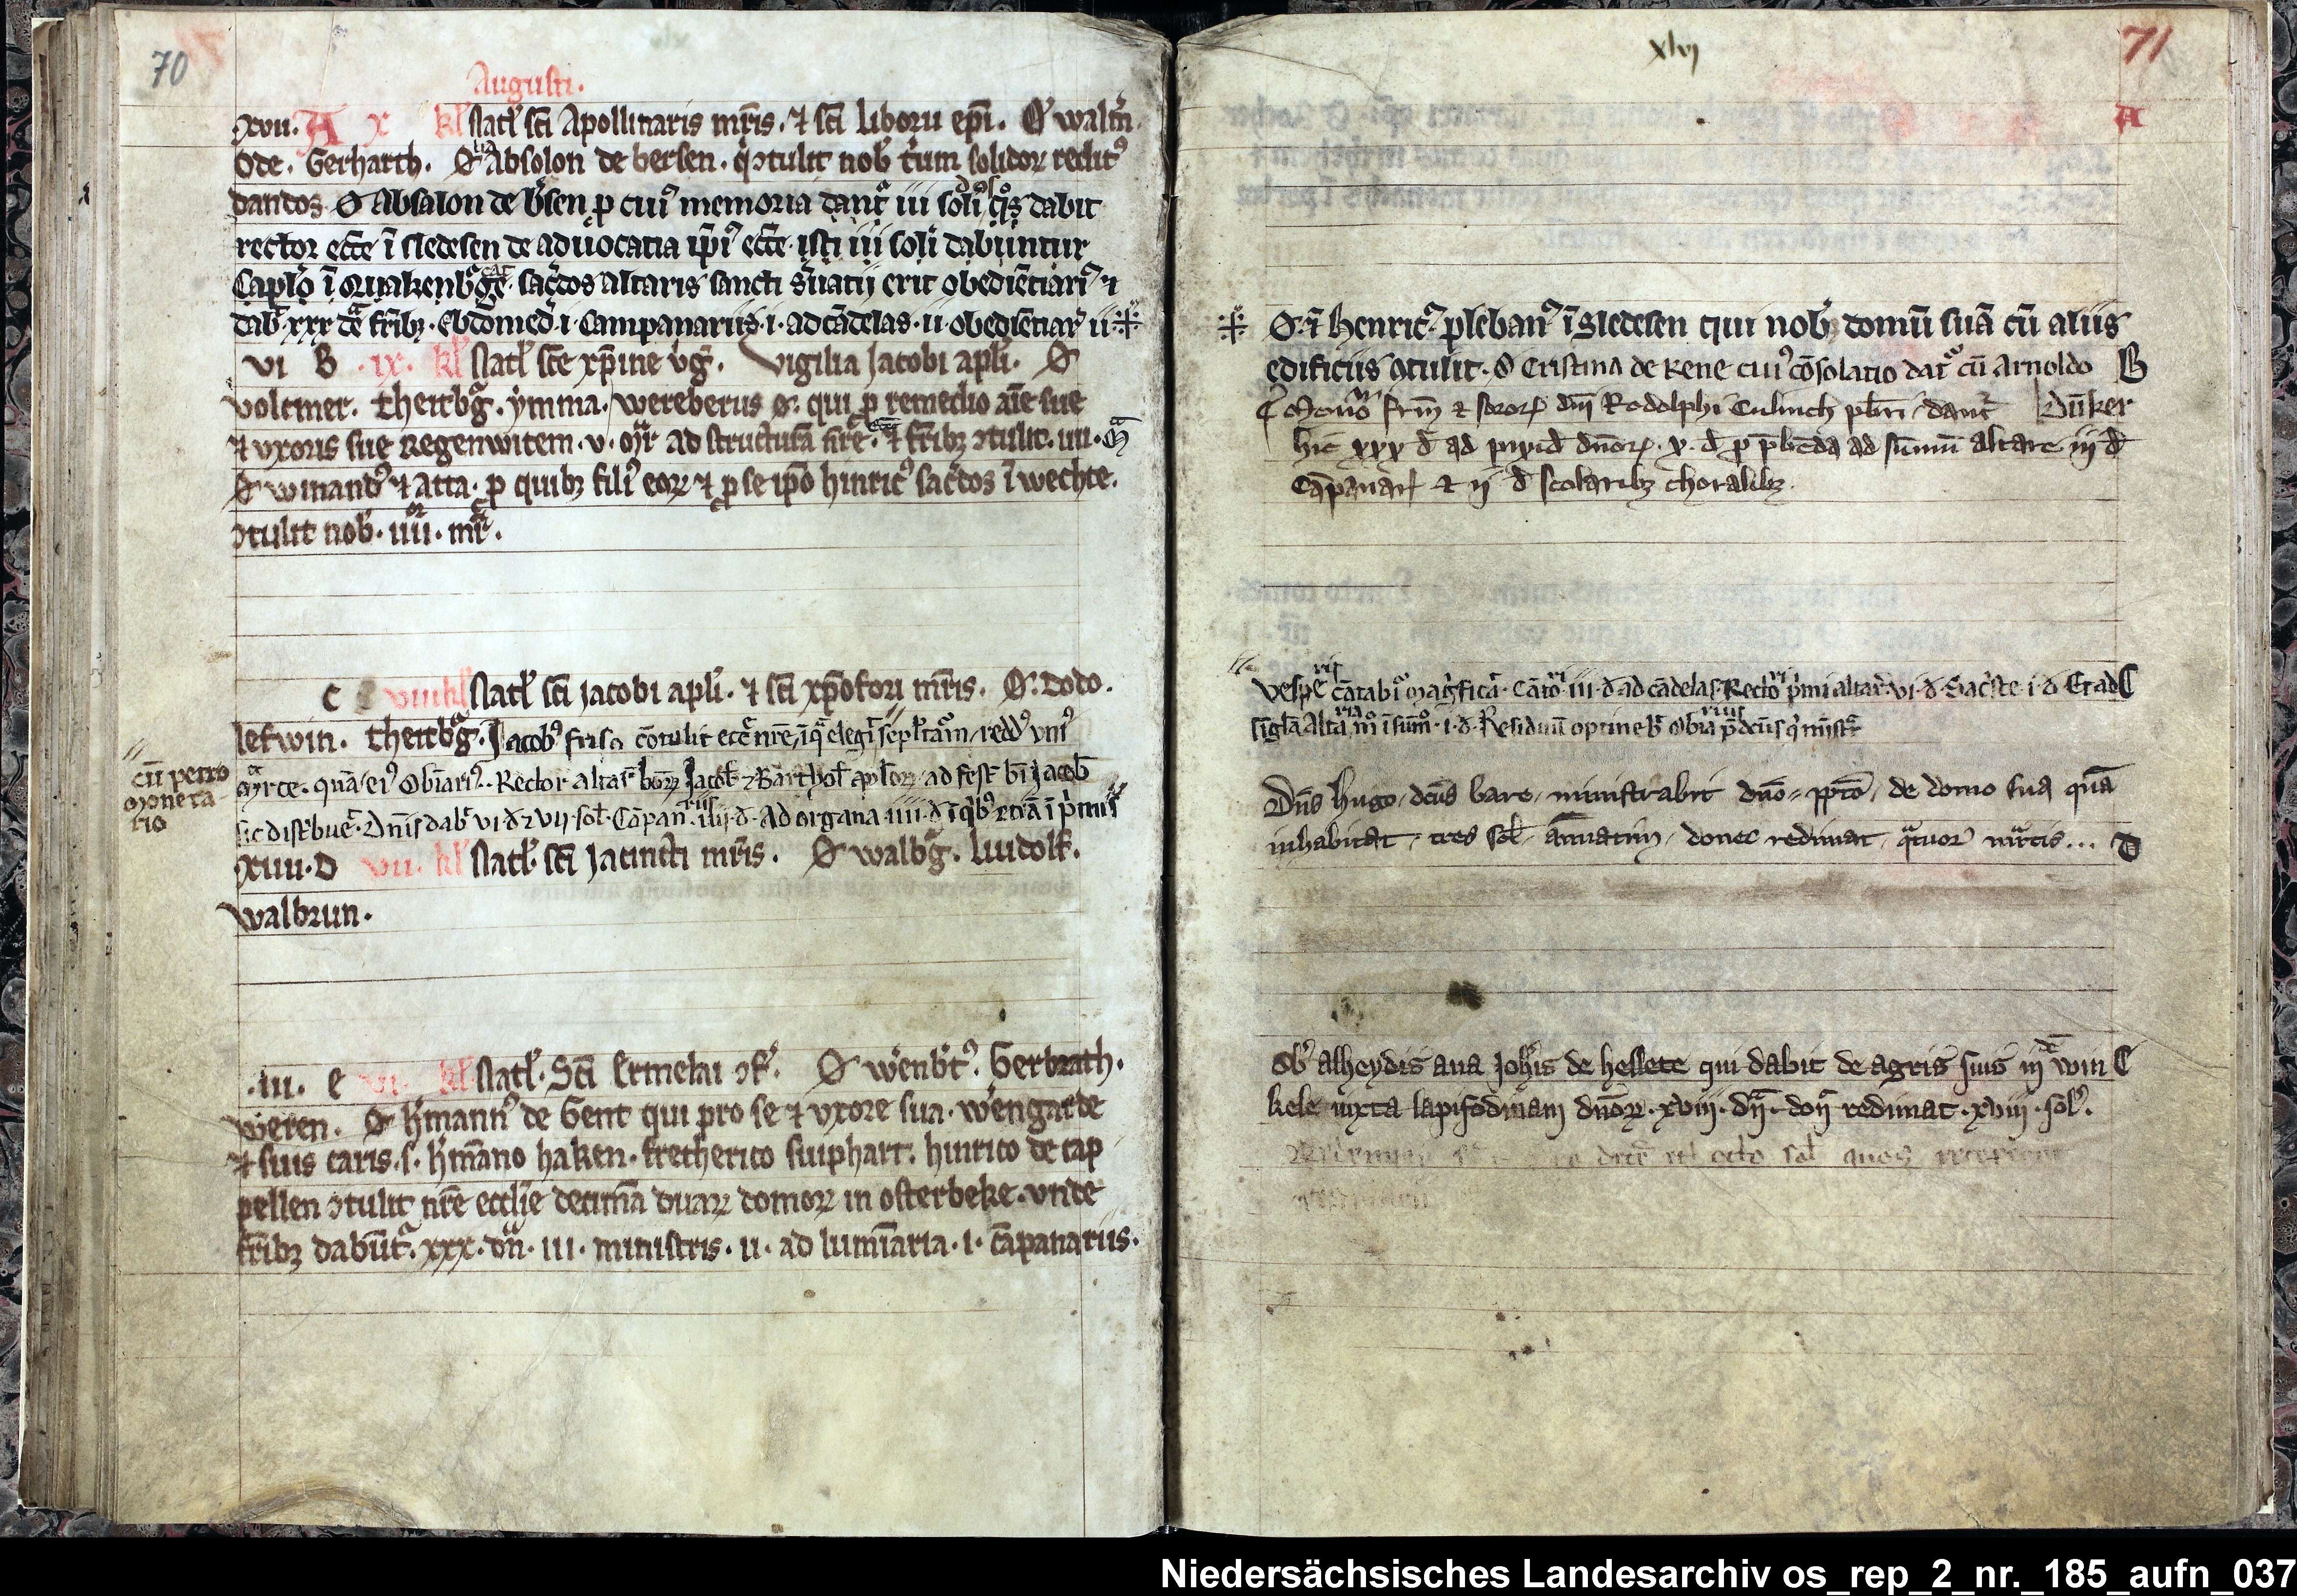 70
Augusti.
xvii. A x kl Natl' sci Apollinaris mris. ⁊ sci Liborii epi. O' walm.
Ode. Gerharth. O' Absolon de bersen. q' ꝯtulit nob' t'um solidoꝝ reditꝰ
dandos. O Absalon de b'sen p cuiꝰ memoria dant' iii soli' dabit
rector ecce ī sledesen de aduocatia ip̄iꝰ ecce. isti iii soli' dabuntur
Caplo ī Quakenb'ge. sac'dos altaris sancti s'uatii erit obediētiariꝰ ⁊
dab' xxx fr̄ibꝫ. Ebdomed' i. Campanariis. i. ad cādelas. ii. obediētiar' ii
vi B ix. kl Natl' sce xp̄ine vg'. Vigilia Jacobi apl'i. O'
Volcmer. Theitb'g. ymma. Wereberus O. qui p remedio aīe sue
⁊ vxoris sue Regenwitem. v. mr' ad structurā nr̄e ⁊ fr̄ibꝫ ꝯtulit. iiii.
O' winandꝰ ⁊ atta. p quibꝫ filiꝰ eoꝝ ⁊ p se ip̄o hinricꝰ sac'dos ī wechte.
ꝯtulit nob'. iiii. mr'.
c viii kl Natl' sci Jacobi apl'i. ⁊ sci xp̄ofori mr̄is. O'. Dodo.
Lefwin. Theitb'g. Jacobꝰ friso cōtulit ecc' nr̄e, ī q' elegit sepl't'am, redd' vniꝰ
cū petro
moneta
rio
mr̄ce. quā eiꝰ obiariꝰ. Rector altar' boꝝ Jacob' ⁊ Barthol' ap'loꝝ, ad fest' bī Jacob'
sic dist'buet. Dn̄is dab' vi. d' ⁊ vii. sol'. Cāpan'riis. iiii. d'. Ad organa. iiii. d' ī q'bꝰ etiā ī p'mis
xiiii. D vii. kl Natl'. sci Jacincti mr̄is. O' walb'g. Luidolf.
Walbrun.
iii. e vi. kl Natl'. Sci Ermelai ꝯf'. O' w'enb'tꝰ. Gerbrath.
Weren. O' h'mannꝰ de Gent qui pro se ⁊ vxore sua. w'engarde
⁊ suis caris. s. h'māno haken. fretherico suiphart. hinrico de cap
pellen ꝯtulit nr̄e ecclīe decimā duaꝝ domoꝝ in osterbeke. vnde
fr̄ibꝫ dabūt'. xxx. dn̄. iii. ministris. ii. ad lumīaria. i. cāpanariis.
xlvi
71
A
O'. Henricꝰ. plebanꝰ ī Sledesen qui nob' domū suā cū aliis
edificiis ꝯtulit. O Cristina de Rene cuiꝰ cōsolatio dat' cū Arnoldo B
Düker
Memo' fr̄m ⁊ soroꝝ dn̄i Rodolphi Culinch pb'ri, dant'
hic xxx d' ad pixid' dn̄oꝝ. v. d' p p̄bēda ad sūmū altare iij d'
Cāpanar' ⁊ ij d' scolaribꝫ choralibꝫ.
vesp'e cātab' mag'ficat'. Cāto'ri iii. d'. ad cādelas. Recto'ri p'mi altar'. vi. d'. Sac'ste. i. d'. Et ad C
singl'a Altaria ī sum̄o. i. d'. Residuū optineb' obiarius p'dcūs q' mist'
Dn̄s hugo, dcūs bare, ministrabit dn̄o p̄pto, de domo sua quā
inhabitat, tres sol' annuatim, donec redimat, q'tuor m'rcis... D
Ob' alheydis aua Joh'is de hellete qui dabit de agris suis in win C
kele iuxta lapifodinam dn̄oꝝ. xviii. dn̄. don̄ redimat. xviii. sol'.
octo sol' quos
Niedersächsisches Landesarchiv os_rep_2_nr._185_aufn_037